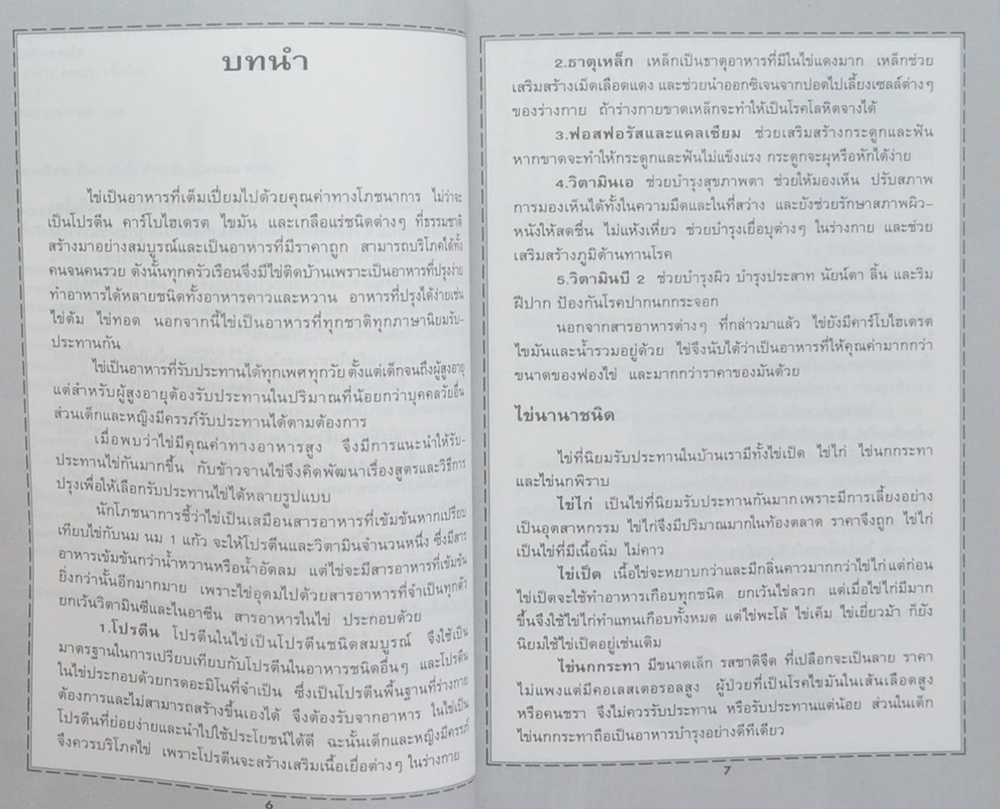 บทนำ
ไข่เป็นอาหารที่เต็มเปี่ยมไปด้วยคุณค่าทางโภชนาการ ไม่ว่าจะ
เป็นโปรตีน คาร์โบไฮเดรต ไขมัน และเกลือแร่ชนิดต่างๆ ที่ธรรมชาติ
สร้างมาอย่างสมบูรณ์และเป็นอาหารที่มีราคาถูก สามารถบริโภคได้ทั้ง
คนจนคนรวย ดังนั้นทุกครัวเรือนจึงมีไข่ติดบ้านเพราะเป็นอาหารที่ปรุงง่าย
ทำอาหารได้หลายชนิดทั้งอาหารคาวและหวาน อาหารที่ปรุงได้ง่ายเช่น
ไข่ต้ม ไข่ทอด นอกจากนี้ไข่เป็นอาหารที่ทุกชาติทุกภาษานิยมรับ-
ประทานกัน
ไข่เป็นอาหารที่รับประทานได้ทุกเพศทุกวัย ตั้งแต่เด็กจนถึงผู้สูงอายุ
แต่สำหรับผู้สูงอายุต้องรับประทานในปริมาณที่น้อยกว่าบุคคลวัยอื่น
ส่วนเด็กและหญิงมีครรภ์รับประทานได้ตามต้องการ
เมื่อพบว่าไข่มีคุณค่าทางอาหารสูง จึงมีการแนะนำให้รับ-
ประทานไข่กันมากขึ้น กับข้าวจานไข่จึงคิดพัฒนาเรื่องสูตรและวิธีการ
ปรุงเพื่อให้เลือกรับประทานไข่ได้หลายรูปแบบ
นักโภชนาการชี้ว่าไข่เป็นเสมือนสารอาหารที่เข้มข้นหากเปรียบ
เทียบไข่กับนม นม 1 แก้ว จะให้โปรตีนและวิตามินจำนวนหนึ่ง ซึ่งมีสาร
อาหารเข้มข้นกว่าน้ำหวานหรือน้ำอัดลม แต่ไข่จะมีสารอาหารที่เข้มข้น
ยิ่งกว่านั้นอีกมากมาย เพราะไข่อุดมไปด้วยสารอาหารที่จำเป็นทุกตัว
ยกเว้นวิตามินซีและไนอาซีน สารอาหารในไข่ ประกอบด้วย
1.โปรตีน โปรตีนในไข่เป็นโปรตีนชนิดสมบูรณ์ จึงใช้เป็น
มาตรฐานในการเปรียบเทียบกับโปรตีนในอาหารชนิดอื่นๆ และโปรตีน
ในไข่ประกอบด้วยกรดอะมิโนที่จำเป็น ซึ่งเป็นโปรตีนพื้นฐานที่ร่างกาย
ต้องการและไม่สามารถสร้างขึ้นเองได้ จึงต้องรับจากอาหาร ในไข่เป็น
โปรตีนที่ย่อยง่ายและนำไปใช้ประโยชน์ได้ดี ฉะนั้นเด็กและหญิงมีครรภ์
จึงควรบริโภคไข่ เพราะโปรตีนจะสร้างเสริมเนื้อเยื่อต่างๆ ในร่างกาย
6
2.ธาตุเหล็ก เหล็กเป็นธาตุอาหารที่มีในไข่แดงมาก เหล็กช่วย
เสริมสร้างเม็ดเลือดแดง และช่วยนำออกซิเจนจากปอดไปเลี้ยงเซลล์ต่างๆ
ของร่างกาย ถ้าร่างกายขาดเหล็กจะทำให้เป็นโรคโลหิตจางได้
3.ฟอสฟอรัสและแคลเซียม ช่วยเสริมสร้างกระดูกและฟัน
หากขาดจะทำให้กระดูกและฟันไม่แข็งแรง กระดูกจะผุหรือหักได้ง่าย
4.วิตามินเอ ช่วยบำรุงสุขภาพตา ช่วยให้มองเห็น ปรับสภาพ
การมองเห็นได้ทั้งในความมืดและในที่สว่าง และยังช่วยรักษาสภาพผิว-
หนังให้สดชื่น ไม่แห้งเหี่ยว ช่วยบำรุงเยื่อบุต่างๆ ในร่างกาย และช่วย
เสริมสร้างภูมิต้านทานโรค
5.วิตามินบี 2 ช่วยบำรุงผิว บำรุงประสาท นัยน์ตา ลิ้น และริม
ฝีปาก ป้องกันโรคปากนกกระจอก
นอกจากสารอาหารต่างๆ ที่กล่าวมาแล้ว ไข่ยังมีคาร์โบไฮเดรต
ไขมันและน้ำรวมอยู่ด้วย ไข่จึงนับได้ว่าเป็นอาหารที่ให้คุณค่ามากกว่า
ขนาดของฟองไข่ และมากกว่าราคาของมันด้วย
ไข่นานาชนิด
ไข่ที่นิยมรับประทานในบ้านเรามีทั้งไข่เป็ด ไข่ไก่ ไข่นกกระทา
และไข่นกพิราบ
ไข่ไก่ เป็นไข่ที่นิยมรับประทานกันมากเพราะมีการเลี้ยงอย่าง
เป็นอุตสาหกรรม ไข่ไก่จึงมีปริมาณมากในท้องตลาด ราคาจึงถูก ไข่ไก่
เป็นไข่ที่มีเนื้อนิ่ม ไม่คาว
ไข่เป็ด เนื้อไข่จะหยาบกว่าและมีกลิ่นคาวมากกว่าไข่ไก่ แต่ก่อน
ไข่เป็ดจะใช้ทำอาหารเกือบทุกชนิด ยกเว้นไข่ลวก แต่เมื่อไข่ไก่มีมาก
ขึ้นจึงใช้ไข่ไก่ทำแทนเกือบทั้งหมด แต่ไข่พะโล้ ไข่เค็ม ไข่เยี่ยวม้า ก็ยัง
นิยมใช้ไข่เป็ดอยู่เช่นเดิม
ไข่นกกระทา มีขนาดเล็ก รสชาติจืด ที่เปลือกจะเป็นลาย ราคา
ไม่แพงแต่มีคอเลสเตอรอลสูง ผู้ป่วยที่เป็นโรคไขมันในเส้นเลือดสูง
หรือคนชรา จึงไม่ควรรับประทาน หรือรับประทานแต่น้อย ส่วนในเด็ก
ไข่นกกระทาถือเป็นอาหารบำรุงอย่างดีทีเดียว
7